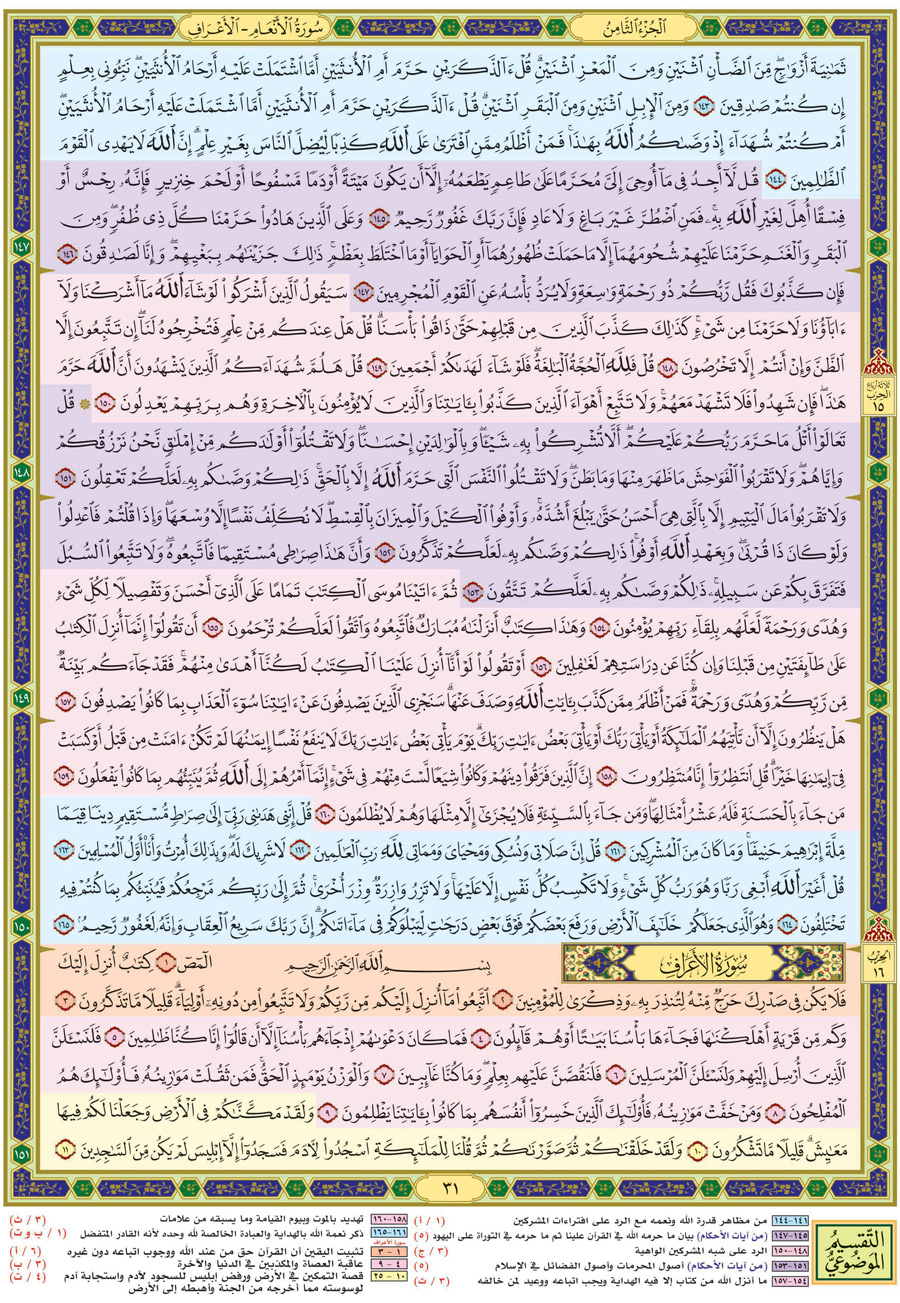 سُورَةُ الْأَنْعَامِ - الْأَعْرَافِ
الْجُزْءُ الثَّامِنُ
ثَمَٰنِيَةَ أَزْوَٰجٍ مِّنَ الضَّأْنِ اثْنَيْنِ وَمِنَ الْمَعْزِ اثْنَيْنِ قُلْ ءَآلذَّكَرَيْنِ حَرَّمَ أَمِ الْأُنثَيَيْنِ أَمَّا اشْتَمَلَتْ عَلَيْهِ أَرْحَامُ الْأُنثَيَيْنِ نَبِّـُٔونِي بِعِلْمٍ
إِن كُنتُمْ صَٰدِقِينَ ١٤٣ وَمِنَ الْإِبِلِ اثْنَيْنِ وَمِنَ الْبَقَرِ اثْنَيْنِ قُلْ ءَآلذَّكَرَيْنِ حَرَّمَ أَمِ الْأُنثَيَيْنِ أَمَّا اشْتَمَلَتْ عَلَيْهِ أَرْحَامُ الْأُنثَيَيْنِ
أَمْ كُنتُمْ شُهَدَآءَ إِذْ وَصَّىٰكُمُ اللَّهُ بِهَٰذَا فَمَنْ أَظْلَمُ مِمَّنِ افْتَرَىٰ عَلَى اللَّهِ كَذِبًا لِّيُضِلَّ النَّاسَ بِغَيْرِ عِلْمٍ إِنَّ اللَّهَ لَا يَهْدِي الْقَوْمَ
الظَّٰلِمِينَ ١٤٤ قُل لَّآ أَجِدُ فِي مَآ أُوحِيَ إِلَيَّ مُحَرَّمًا عَلَىٰ طَاعِمٍ يَطْعَمُهُۥٓ إِلَّآ أَن يَكُونَ مَيْتَةً أَوْ دَمًا مَّسْفُوحًا أَوْ لَحْمَ خِنزِيرٍ فَإِنَّهُۥ رِجْسٌ أَوْ
فِسْقًا أُهِلَّ لِغَيْرِ اللَّهِ بِهِۦ فَمَنِ اضْطُرَّ غَيْرَ بَاغٍ وَلَا عَادٍ فَإِنَّ رَبَّكَ غَفُورٌ رَّحِيمٌ ١٤٥ وَعَلَى الَّذِينَ هَادُوا۟ حَرَّمْنَا كُلَّ ذِي ظُفُرٍ وَمِنَ
الْبَقَرِ وَالْغَنَمِ حَرَّمْنَا عَلَيْهِمْ شُحُومَهُمَآ إِلَّا مَا حَمَلَتْ ظُهُورُهُمَآ أَوِ الْحَوَايَآ أَوْ مَا اخْتَلَطَ بِعَظْمٍ ذَٰلِكَ جَزَيْنَٰهُم بِبَغْيِهِمْ وَإِنَّا لَصَٰدِقُونَ ١٤٦
فَإِن كَذَّبُوكَ فَقُل رَّبُّكُمْ ذُو رَحْمَةٍ وَٰسِعَةٍ وَلَا يُرَدُّ بَأْسُهُۥ عَنِ الْقَوْمِ الْمُجْرِمِينَ ١٤٧ سَيَقُولُ الَّذِينَ أَشْرَكُوا۟ لَوْ شَآءَ اللَّهُ مَآ أَشْرَكْنَا وَلَآ
ءَابَآؤُنَا وَلَا حَرَّمْنَا مِن شَيْءٍ كَذَٰلِكَ كَذَّبَ الَّذِينَ مِن قَبْلِهِمْ حَتَّىٰ ذَاقُوا۟ بَأْسَنَا قُلْ هَلْ عِندَكُم مِّنْ عِلْمٍ فَتُخْرِجُوهُ لَنَآ إِن تَتَّبِعُونَ إِلَّا
الظَّنَّ وَإِنْ أَنتُمْ إِلَّا تَخْرُصُونَ ١٤٨ قُلْ فَلِلَّهِ الْحُجَّةُ الْبَٰلِغَةُ فَلَوْ شَآءَ لَهَدَىٰكُمْ أَجْمَعِينَ ١٤٩ قُلْ هَلُمَّ شُهَدَآءَكُمُ الَّذِينَ يَشْهَدُونَ أَنَّ اللَّهَ حَرَّمَ
هَٰذَا فَإِن شَهِدُوا۟ فَلَا تَشْهَدْ مَعَهُمْ وَلَا تَتَّبِعْ أَهْوَآءَ الَّذِينَ كَذَّبُوا۟ بِـَٔايَٰتِنَا وَالَّذِينَ لَا يُؤْمِنُونَ بِالْأٓخِرَةِ وَهُم بِرَبِّهِمْ يَعْدِلُونَ ١٥٠ ۞ قُلْ
تَعَالَوْا۟ أَتْلُ مَا حَرَّمَ رَبُّكُمْ عَلَيْكُمْ أَلَّا تُشْرِكُوا۟ بِهِۦ شَيْـًٔا وَبِالْوَٰلِدَيْنِ إِحْسَٰنًا وَلَا تَقْتُلُوٓا۟ أَوْلَٰدَكُم مِّنْ إِمْلَٰقٍ نَّحْنُ نَرْزُقُكُمْ
وَإِيَّاهُمْ وَلَا تَقْرَبُوا۟ الْفَوَٰحِشَ مَا ظَهَرَ مِنْهَا وَمَا بَطَنَ وَلَا تَقْتُلُوا۟ النَّفْسَ الَّتِي حَرَّمَ اللَّهُ إِلَّا بِالْحَقِّ ذَٰلِكُمْ وَصَّىٰكُم بِهِۦ لَعَلَّكُمْ تَعْقِلُونَ ١٥١
وَلَا تَقْرَبُوا۟ مَالَ الْيَتِيمِ إِلَّا بِالَّتِي هِيَ أَحْسَنُ حَتَّىٰ يَبْلُغَ أَشُدَّهُۥ وَأَوْفُوا۟ الْكَيْلَ وَالْمِيزَانَ بِالْقِسْطِ لَا نُكَلِّفُ نَفْسًا إِلَّا وُسْعَهَا وَإِذَا قُلْتُمْ فَاعْدِلُوا۟
وَلَوْ كَانَ ذَا قُرْبَىٰ وَبِعَهْدِ اللَّهِ أَوْفُوا۟ ذَٰلِكُمْ وَصَّىٰكُم بِهِۦ لَعَلَّكُمْ تَذَكَّرُونَ ١٥٢ وَأَنَّ هَٰذَا صِرَٰطِي مُسْتَقِيمًا فَاتَّبِعُوهُ وَلَا تَتَّبِعُوا۟ السُّبُلَ
فَتَفَرَّقَ بِكُمْ عَن سَبِيلِهِۦ ذَٰلِكُمْ وَصَّىٰكُم بِهِۦ لَعَلَّكُمْ تَتَّقُونَ ١٥٣ ثُمَّ ءَاتَيْنَا مُوسَى الْكِتَٰبَ تَمَامًا عَلَى الَّذِيٓ أَحْسَنَ وَتَفْصِيلًا لِّكُلِّ شَيْءٍ
وَهُدًى وَرَحْمَةً لَّعَلَّهُم بِلِقَآءِ رَبِّهِمْ يُؤْمِنُونَ ١٥٤ وَهَٰذَا كِتَٰبٌ أَنزَلْنَٰهُ مُبَارَكٌ فَاتَّبِعُوهُ وَاتَّقُوا۟ لَعَلَّكُمْ تُرْحَمُونَ ١٥٥ أَن تَقُولُوٓا۟ إِنَّمَآ أُنزِلَ الْكِتَٰبُ
عَلَىٰ طَآئِفَتَيْنِ مِن قَبْلِنَا وَإِن كُنَّا عَن دِرَاسَتِهِمْ لَغَٰفِلِينَ ١٥٦ أَوْ تَقُولُوا۟ لَوْ أَنَّآ أُنزِلَ عَلَيْنَا الْكِتَٰبُ لَكُنَّآ أَهْدَىٰ مِنْهُمْ فَقَدْ جَآءَكُم بَيِّنَةٌ
مِّن رَّبِّكُمْ وَهُدًى وَرَحْمَةٌ فَمَنْ أَظْلَمُ مِمَّن كَذَّبَ بِـَٔايَٰتِ اللَّهِ وَصَدَفَ عَنْهَا سَنَجْزِي الَّذِينَ يَصْدِفُونَ عَنْ ءَايَٰتِنَا سُوٓءَ الْعَذَابِ بِمَا كَانُوا۟ يَصْدِفُونَ ١٥٧
هَلْ يَنظُرُونَ إِلَّآ أَن تَأْتِيَهُمُ الْمَلَٰٓئِكَةُ أَوْ يَأْتِيَ رَبُّكَ أَوْ يَأْتِيَ بَعْضُ ءَايَٰتِ رَبِّكَ يَوْمَ يَأْتِي بَعْضُ ءَايَٰتِ رَبِّكَ لَا يَنفَعُ نَفْسًا إِيمَٰنُهَا لَمْ تَكُنْ ءَامَنَتْ مِن قَبْلُ أَوْ كَسَبَتْ
فِيٓ إِيمَٰنِهَا خَيْرًا قُلِ انتَظِرُوٓا۟ إِنَّا مُنتَظِرُونَ ١٥٨ إِنَّ الَّذِينَ فَرَّقُوا۟ دِينَهُمْ وَكَانُوا۟ شِيَعًا لَّسْتَ مِنْهُمْ فِي شَيْءٍ إِنَّمَآ أَمْرُهُمْ إِلَى اللَّهِ ثُمَّ يُنَبِّئُهُم بِمَا كَانُوا۟ يَفْعَلُونَ ١٥٩
مَن جَآءَ بِالْحَسَنَةِ فَلَهُۥ عَشْرُ أَمْثَالِهَا وَمَن جَآءَ بِالسَّيِّئَةِ فَلَا يُجْزَىٰٓ إِلَّا مِثْلَهَا وَهُمْ لَا يُظْلَمُونَ ١٦٠ قُلْ إِنَّنِي هَدَىٰنِي رَبِّيٓ إِلَىٰ صِرَٰطٍ مُّسْتَقِيمٍ دِينًا قِيَمًا
مِّلَّةَ إِبْرَٰهِيمَ حَنِيفًا وَمَا كَانَ مِنَ الْمُشْرِكِينَ ١٦١ قُلْ إِنَّ صَلَاتِي وَنُسُكِي وَمَحْيَايَ وَمَمَاتِي لِلَّهِ رَبِّ الْعَٰلَمِينَ ١٦٢ لَا شَرِيكَ لَهُۥ وَبِذَٰلِكَ أُمِرْتُ وَأَنَا۠ أَوَّلُ الْمُسْلِمِينَ ١٦٣
قُلْ أَغَيْرَ اللَّهِ أَبْغِي رَبًّا وَهُوَ رَبُّ كُلِّ شَيْءٍ وَلَا تَكْسِبُ كُلُّ نَفْسٍ إِلَّا عَلَيْهَا وَلَا تَزِرُ وَازِرَةٌ وِزْرَ أُخْرَىٰ ثُمَّ إِلَىٰ رَبِّكُم مَّرْجِعُكُمْ فَيُنَبِّئُكُم بِمَا كُنتُمْ فِيهِ
تَخْتَلِفُونَ ١٦٤ وَهُوَ الَّذِي جَعَلَكُمْ خَلَٰٓئِفَ الْأَرْضِ وَرَفَعَ بَعْضَكُمْ فَوْقَ بَعْضٍ دَرَجَٰتٍ لِّيَبْلُوَكُمْ فِي مَآ ءَاتَىٰكُمْ إِنَّ رَبَّكَ سَرِيعُ الْعِقَابِ وَإِنَّهُۥ لَغَفُورٌ رَّحِيمٌ ١٦٥
سُورَةُ الْأَعْرَافِ بِسْمِ اللَّهِ الرَّحْمَٰنِ الرَّحِيمِ الٓمٓصٓ ١ كِتَٰبٌ أُنزِلَ إِلَيْكَ
فَلَا يَكُن فِي صَدْرِكَ حَرَجٌ مِّنْهُ لِتُنذِرَ بِهِۦ وَذِكْرَىٰ لِلْمُؤْمِنِينَ ٢ اتَّبِعُوا۟ مَآ أُنزِلَ إِلَيْكُم مِّن رَّبِّكُمْ وَلَا تَتَّبِعُوا۟ مِن دُونِهِۦٓ أَوْلِيَآءَ قَلِيلًا مَّا تَذَكَّرُونَ ٣
وَكَم مِّن قَرْيَةٍ أَهْلَكْنَٰهَا فَجَآءَهَا بَأْسُنَا بَيَٰتًا أَوْ هُمْ قَآئِلُونَ ٤ فَمَا كَانَ دَعْوَىٰهُمْ إِذْ جَآءَهُم بَأْسُنَآ إِلَّآ أَن قَالُوٓا۟ إِنَّا كُنَّا ظَٰلِمِينَ ٥ فَلَنَسْـَٔلَنَّ
الَّذِينَ أُرْسِلَ إِلَيْهِمْ وَلَنَسْـَٔلَنَّ الْمُرْسَلِينَ ٦ فَلَنَقُصَّنَّ عَلَيْهِم بِعِلْمٍ وَمَا كُنَّا غَآئِبِينَ ٧ وَالْوَزْنُ يَوْمَئِذٍ الْحَقُّ فَمَن ثَقُلَتْ مَوَٰزِينُهُۥ فَأُو۟لَٰٓئِكَ هُمُ
الْمُفْلِحُونَ ٨ وَمَنْ خَفَّتْ مَوَٰزِينُهُۥ فَأُو۟لَٰٓئِكَ الَّذِينَ خَسِرُوٓا۟ أَنفُسَهُم بِمَا كَانُوا۟ بِـَٔايَٰتِنَا يَظْلِمُونَ ٩ وَلَقَدْ مَكَّنَّٰكُمْ فِي الْأَرْضِ وَجَعَلْنَا لَكُمْ فِيهَا
مَعَٰيِشَ قَلِيلًا مَّا تَشْكُرُونَ ١٠ وَلَقَدْ خَلَقْنَٰكُمْ ثُمَّ صَوَّرْنَٰكُمْ ثُمَّ قُلْنَا لِلْمَلَٰٓئِكَةِ اسْجُدُوا۟ لِأٓدَمَ فَسَجَدُوٓا۟ إِلَّآ إِبْلِيسَ لَمْ يَكُن مِّنَ السَّٰجِدِينَ ١١
١٤٧
١٤٨
١٤٩
١٥٠
١٥١
ثلاثة أرباع
الحزب
١٥
الحزب
١٦
٣١
التَّقْسِيمُ
المَوْضُوعِيُّ
١٤١-١٤٤ من مظاهر قدرة الله ونعمه مع الرد على افتراءات المشركين (١ / أ)
١٤٥-١٤٧ (من آيات الأحكام) بيان ما حرمه الله في القرآن علينا ثم ما حرمه في التوراة على اليهود (٥)
١٤٨-١٥٠ الرد على شبه المشركين الواهية (٣ / ج)
١٥١-١٥٣ (من آيات الأحكام) أصول المحرمات وأصول الفضائل في الإسلام (٥)
١٥٤-١٥٧ ما أنزل الله من كتاب إلا فيه الهداية ويجب اتباعه ووعيد لمن خالفه (٣ / ث)
١٥٨-١٦٠ تهديد بالموت وبيوم القيامة وما يسبقه من علامات (٣ / ث)
١٦١-١٦٥ ذكر نعمة الله بالهداية والعبادة الخالصة لله وحده لأنه القادر المتفضل (١ / ب و ت)
سورة الأعراف
١ - ٣ تثبيت اليقين أن القرآن حق من عند الله ووجوب اتباعه دون غيره (٦ / أ)
٤ - ٩ عاقبة العصاة والمكذبين في الدنيا والآخرة (٣ / ب)
١٠ - ٢٥ قصة التمكين في الأرض ورفض إبليس للسجود لآدم واستجابة آدم (٤ / ت)
لوسوسته مما أخرجه من الجنة وأهبطه إلى الأرض